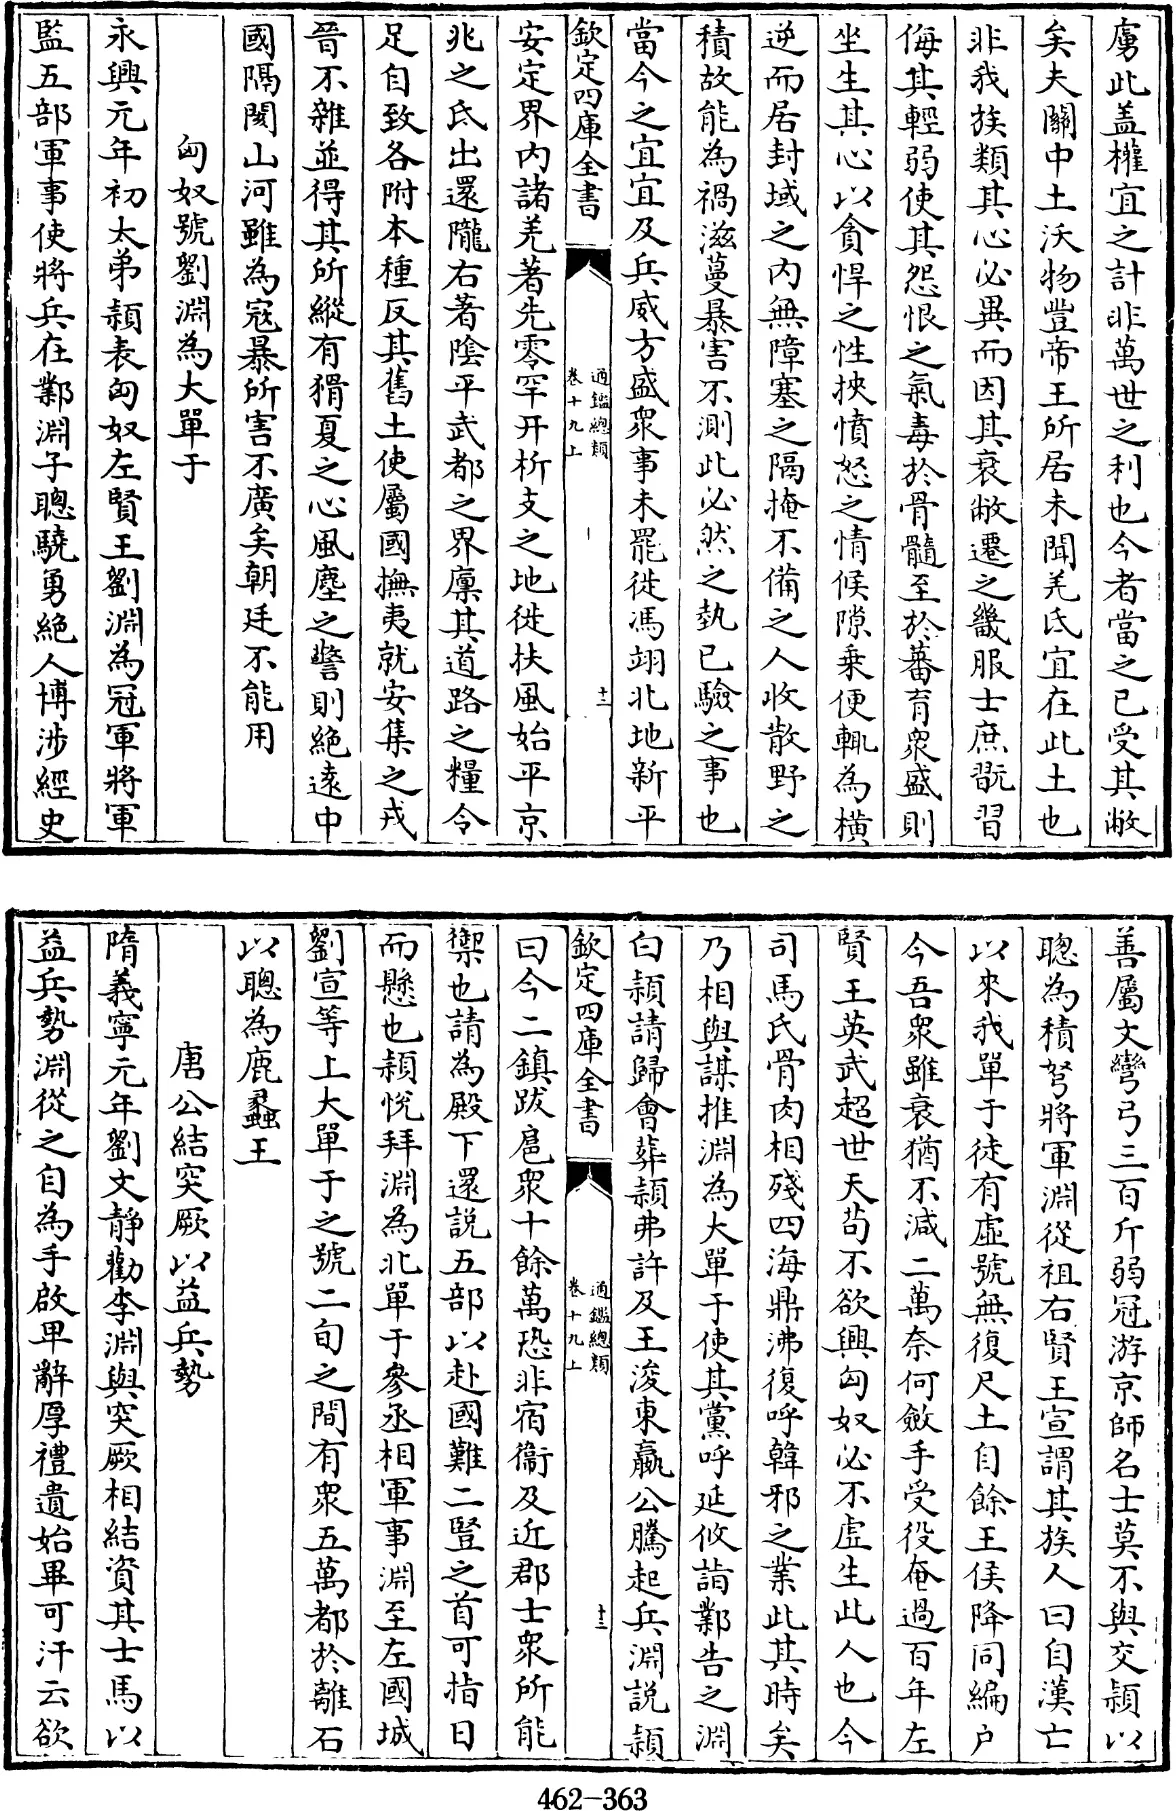 虜此盖權宜之計非萬世之利也今者當之已受其敝
矣夫關中土沃物豐帝王所居未聞羌氐宜在此土也
非我族類其心必異而因其衰敝遷之畿服士庶翫習
侮其輕弱使其怨恨之氣毒於骨髓至於蕃育衆盛則
坐生其心以貪悍之性挾憤怒之情候隙乗便輒為横
逆而居封域之内無障塞之隔掩不備之人收散野之
積故能為禍滋蔓暴害不測此必然之埶已驗之事也
當今之宜宜及兵威方盛衆事未罷徙馮翊北地新平
欽定四庫全書
通鑑總類
卷十九上
十二
安定界内諸羌著先零罕幵析支之地徙扶風始平京
兆之氐出還隴右著陰平武都之界廪其道路之糧令
足自致各附本種反其舊土使屬國撫夷就安集之戎
晉不雜並得其所縱有猾夏之心風塵之警則絶逺中
國隔閡山河雖為寇暴所害不廣矣朝廷不能用
匈奴號劉淵為大單于
永興元年初太弟頴表匈奴左賢王劉淵為冠軍將軍
監五部軍事使將兵在鄴淵子聰驍勇絶人博涉經史
善屬文彎弓三百斤弱冠游京師名士莫不與交頴以
聰為積弩將軍淵從祖右賢王宣謂其族人曰自漢亡
以來我單于徒有虚號無復尺土自餘王侯降同編户
今吾衆雖衰猶不减二萬奈何斂手受役奄過百年左
賢王英武超世天茍不欲興匈奴必不虚生此人也今
司馬氏骨肉相殘四海鼎沸復呼韓邪之業此其時矣
乃相與謀推淵為大單于使其黨呼延攸詣鄴告之淵
白頴請歸會葬頴弗許及王浚東嬴公騰起兵淵説頴
欽定四庫全書
通鑑總類
卷十九上
十三
曰今二鎮跋扈衆十餘萬恐非宿衞及近郡士衆所能
禦也請為殿下還説五部以赴國難二豎之首可指日
而懸也頴恱拜淵為北單于參丞相軍事淵至左國城
劉宣等上大單于之號二旬之間有衆五萬都於離石
以聰為鹿蠡王
唐公結突厥以益兵勢
隋義寧元年劉文靜勸李淵與突厥相結資其士馬以
益兵勢淵從之自為手啟卑辭厚禮遺始畢可汗云欲
462-363